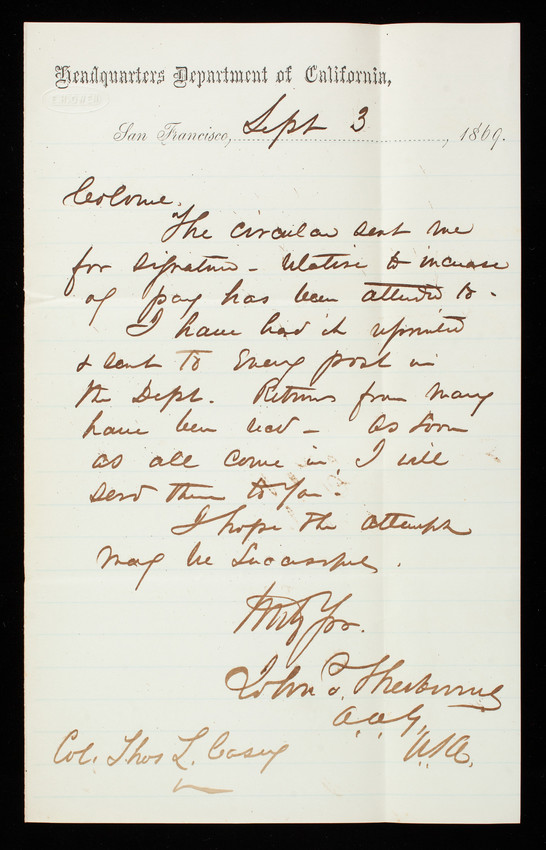 Headquarters Department of California,
San Francisco, Sept 3, 1869.
Colonel,
The circular sent me
for signature - relative to increase
of pay has been attended to -
I have had it reprinted
& sent to Every post in
the Dept. Returns from many
have been recd - As soon
as all come in, I will
send them to You.
I hope the attempt
may be Successful.
Yrs.
John P. Sherburne
A.A.G.
U.S.A.
Col. Thos L. Casey